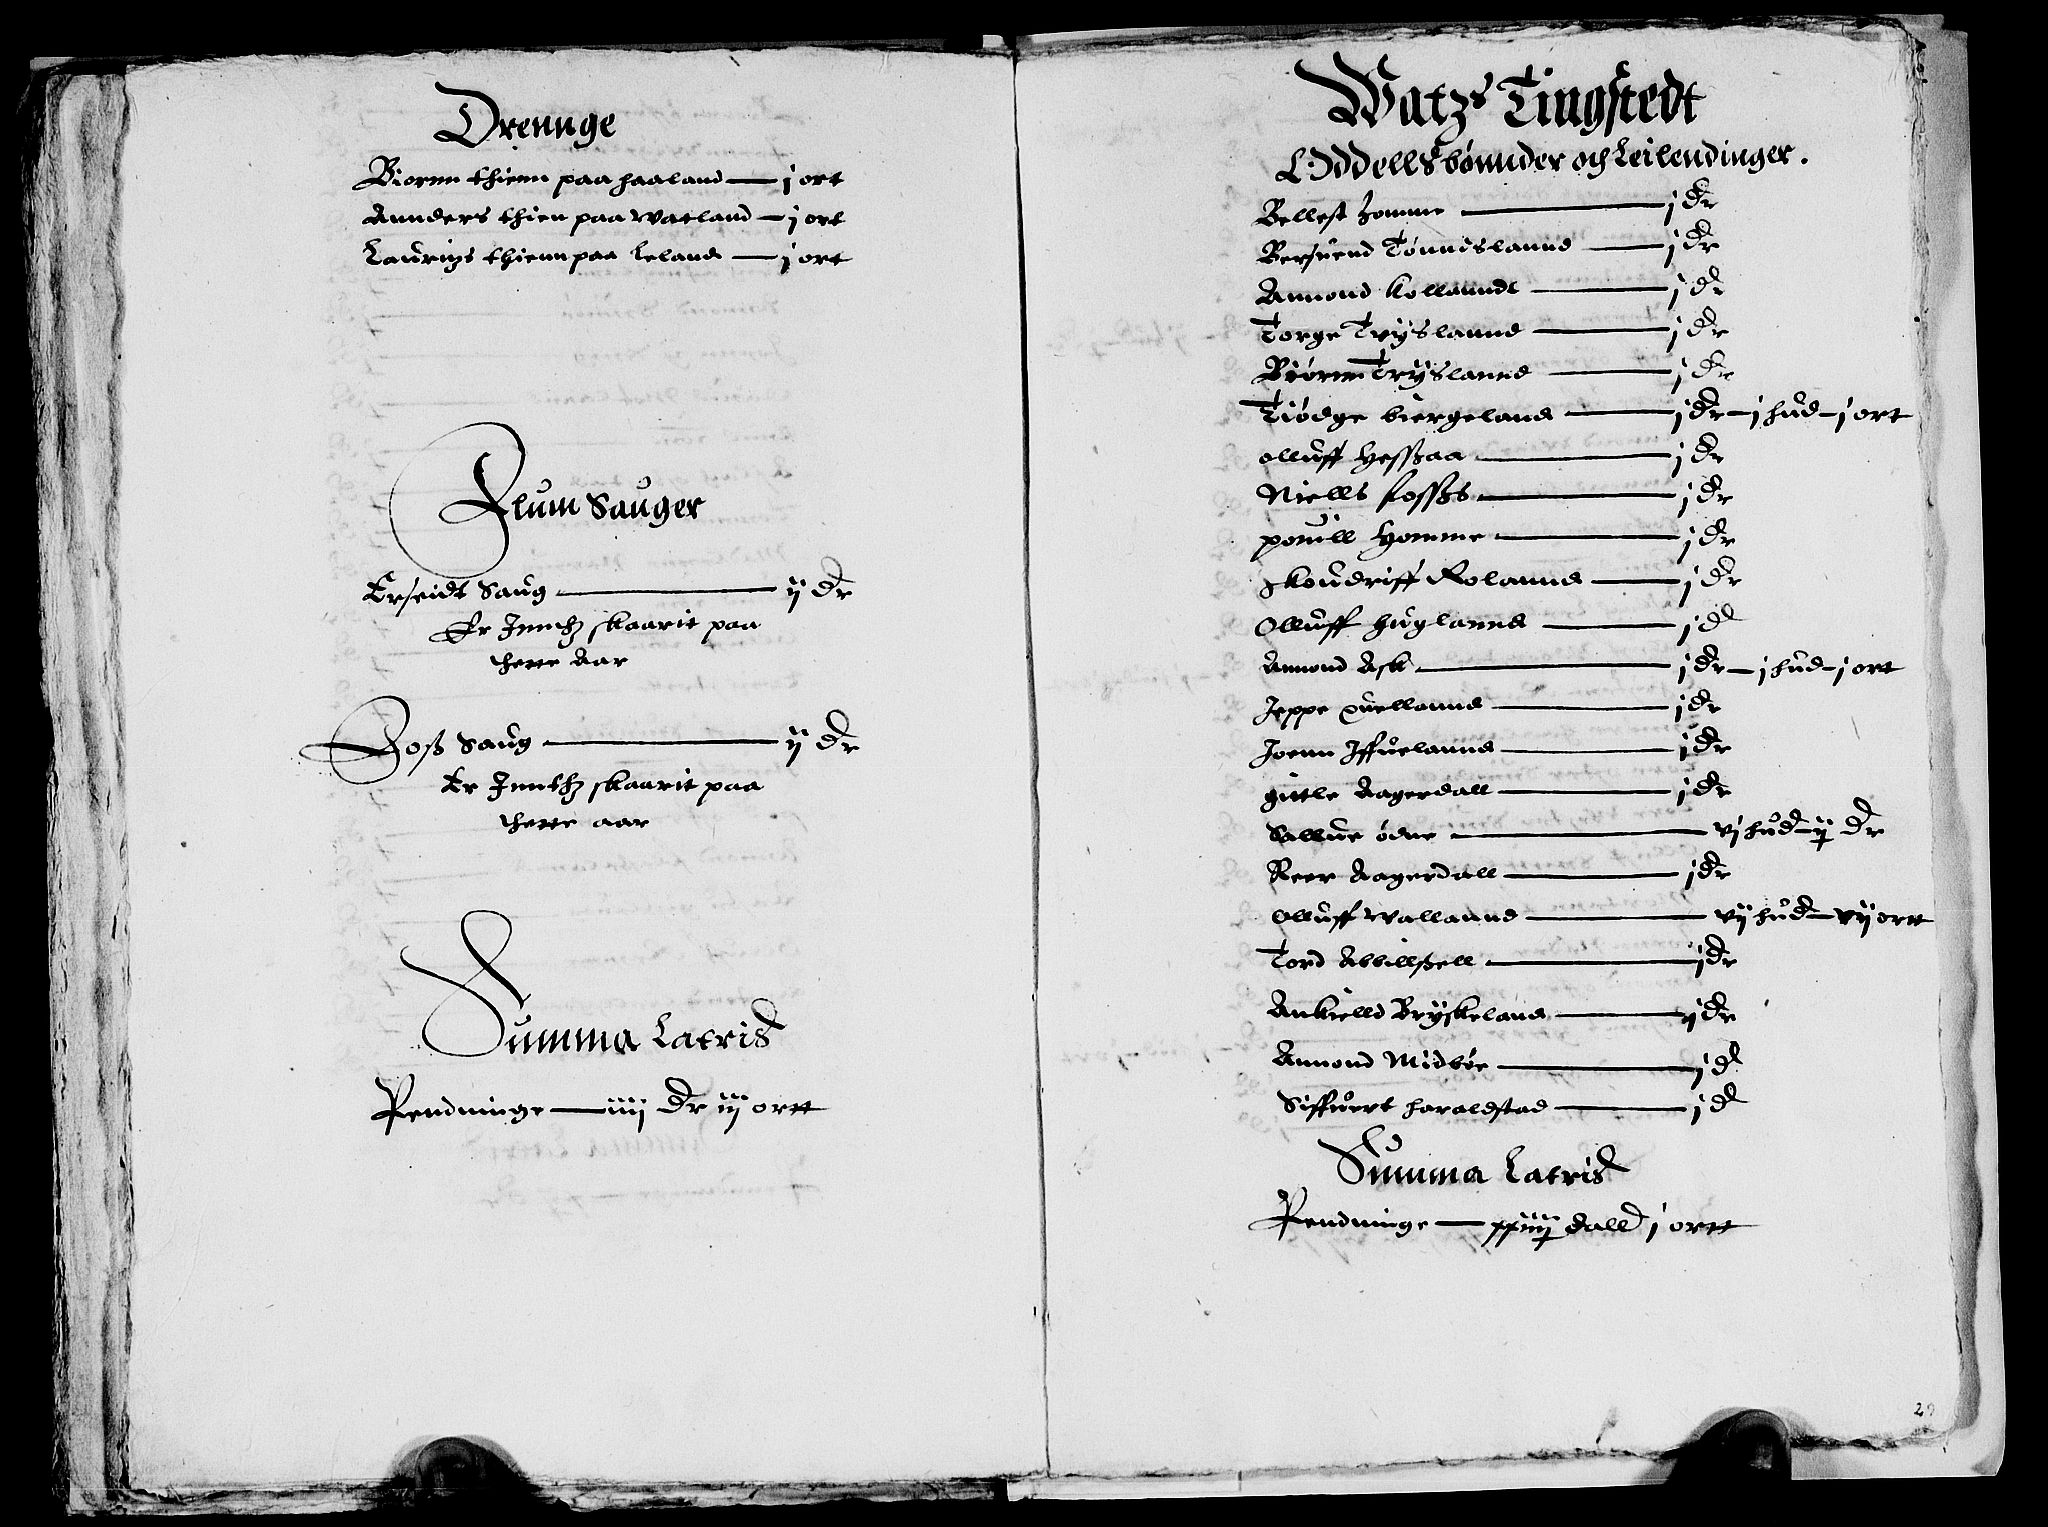 Drennge
Biornn thienn paa haaland — j ort
Annders thien paa Watland — j ort
Lauritzs thienn paa Leland — j ort
Flum Sauger
Erseidt Saug — ij dr
Er Inntthz skaarit paa
thette Aar
Foss Saug — ij dr
Er Inntthz skaarit paa
thette aar
Summa Latris
Pendninge — iiij dr iij ortt
Watzs Tingstedt
Oddells bønnder och Leilendinger.
Bellest Homme — j dr
Bersuend Tønndslannd — j dr
Amond Kollanndt — j dr
Torge Tryslannd — j dr
Biørnn Tryslannd — j dr
Tiødge biergeland — j dr — j hud — j ort
olluff Hessaa — j dr
Niells Fosss — j dr
pouill Homme — j dr
Skoudriff Rolannd — j dr
Olluff Huglannd — j dl
Amond Ask — j dr — j hud — j ort
Jeppe Quellannd — j dr
Joenn Iffuelannd — j dr
gutle Aagerdall — j dr
Sallue ødne — vj hud — ij dr
Reer Aagerdall — j dr
Olluff Wallannd — vij hud — vij ortt
Tord Abbillsell — j dr
Ankielld Bryskeland — j dr
Amond Midbøe — j dl
Siffuert haraldstad — j dl
Summa Latris
Pendninge — xxiiij dalld j ortt
29